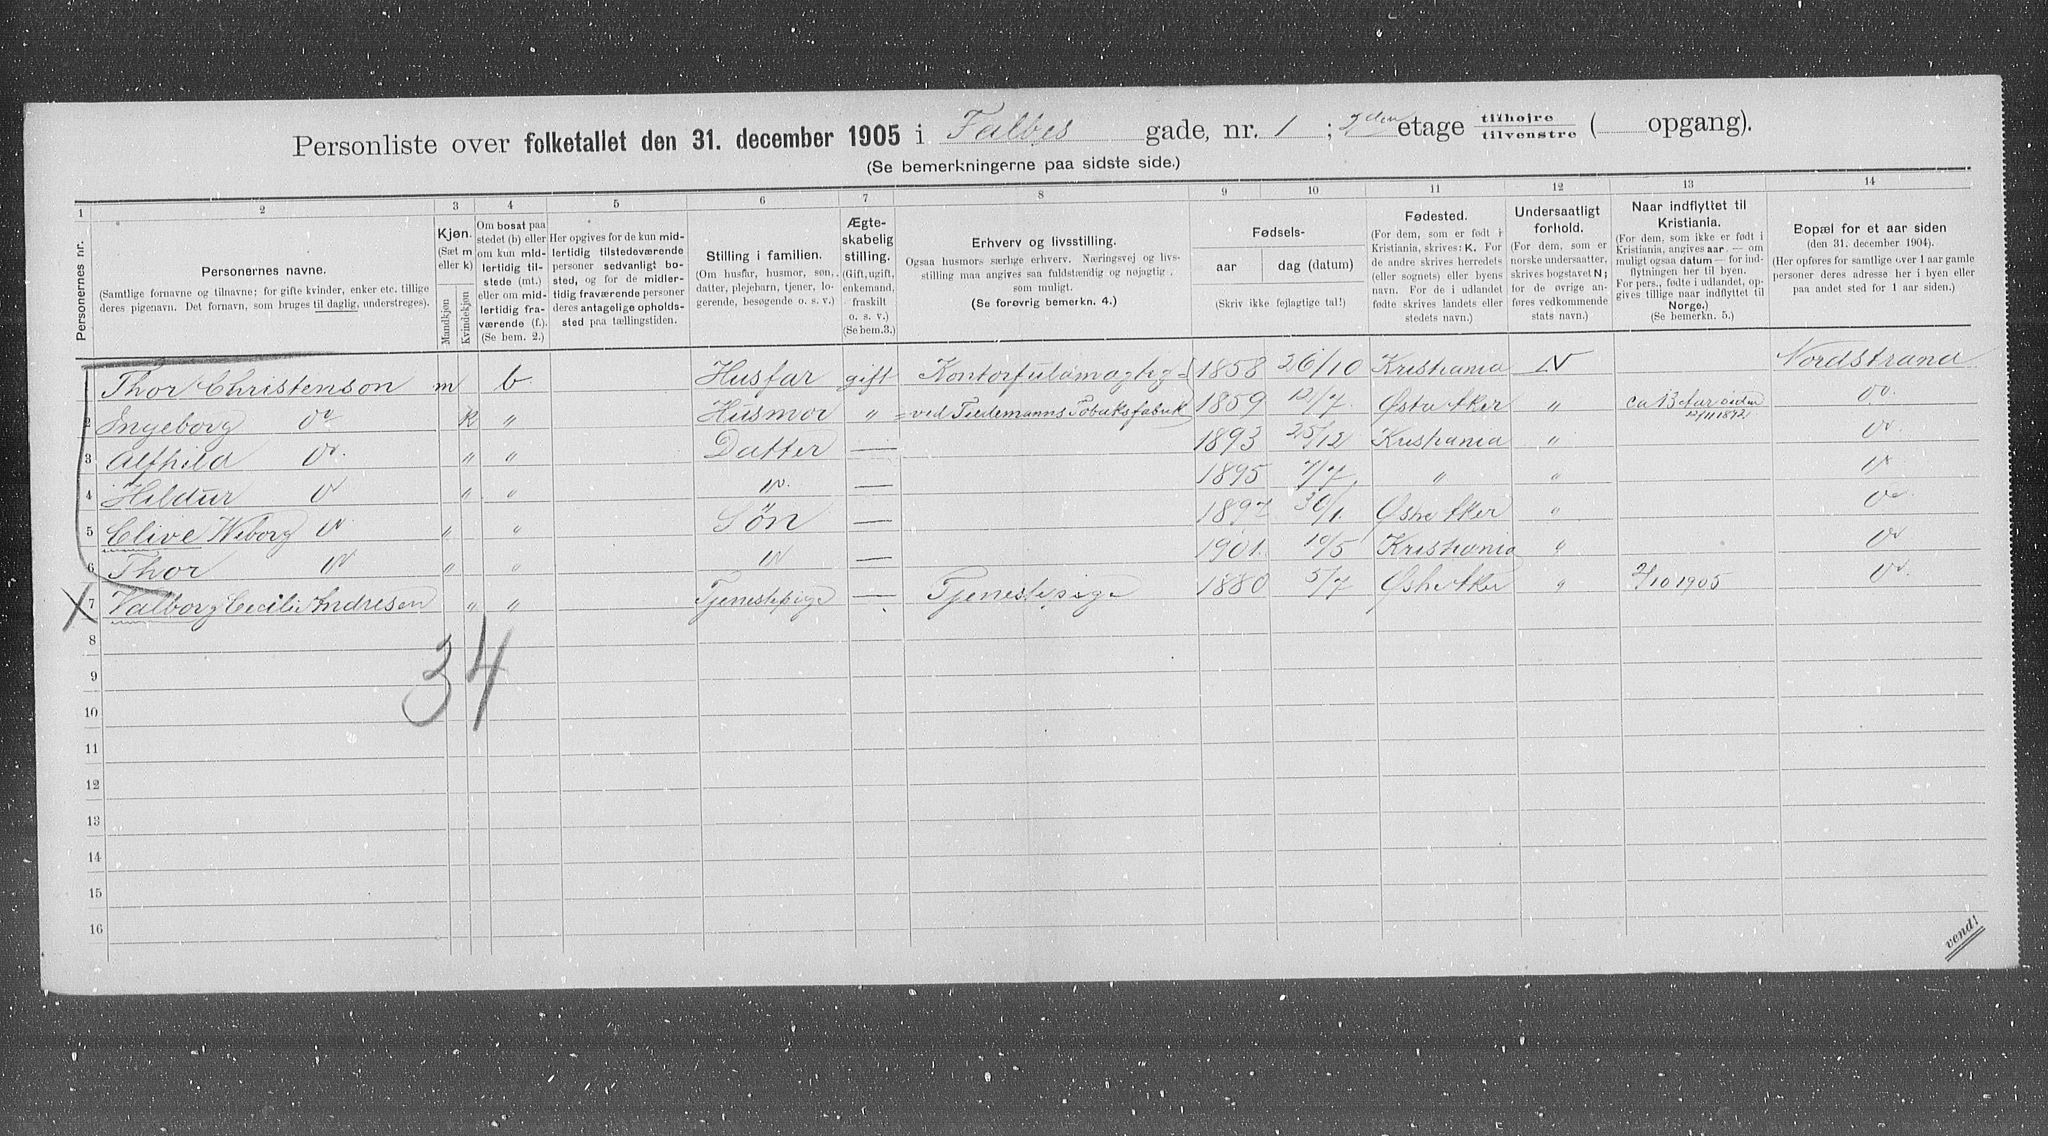 Personliste over folketallet den 31. december 1905 i Falbes gade, nr. 1 ; 2den etage tilhøjre tilvenstre ( opgang).
(Se bemerkningerne paa sidste side.)
1 2 3 4 5 6 7 8 9 10 11 12 13 14
Personernes nr.
Personernes navne.
(Samtlige fornavne og tilnavne; for gifte kvinder, enker etc. tillige
deres pigenavn. Det fornavn, som bruges til daglig, understreges).
Kjøn.
(Sæt m
eller k)
Mandkjøn
Kvindekjøn
Om bosat paa
stedet (b) eller
om kun mid-
lertidig til-
stede (mt.)
eller om mid-
lertidig fra-
værende (f.).
(Se bem. 2.)
Her opgives for de kun mid-
lertidig tilstedeværende
personer sedvanlig bo-
sted, og for de midler-
tidig fraværende personer
deres antagelige opholds-
sted paa tællingstiden.
Stilling i familien.
(Om husfar, husmor, søn,
datter, plejebarn, tjener, lo-
gerende, besøgende o. s. v.)
Ægte-
skabelig
stilling.
(Gift, ugift,
enkemand,
fraskilt
o. s. v.)
(Se bem. 3.)
Erhverv og livsstilling.
Ogsaa husmors særlige erhverv. Næringsvej og livs-
stilling maa angives saa fuldstændig og nøjagtig,
som muligt.
(Se forøvrig bemerkn. 4.)
Fødsels-
aar
dag (datum)
(Skriv ikke fejlagtige tal!)
Fødested.
(For dem, som er født i
Kristiania, skrives: K. For
de andre skrives herredets
(eller sognets) eller byens
navn. For de i udlandet
fødte skrives landets eller
stedets navn.)
Undersaatligt
forhold.
(For dem, som er
norske undersaatter,
skrives bogstavet N;
for de øvrige an-
føres vedkommende
stats navn.)
Naar indflyttet til
Kristiania.
(For dem, som ikke er født i
Kristiania, angives aar — om
muligt ogsaa datum — for ind-
flytningen her til byen.
For pers., fødte i udlandet, op-
gives tillige naar indflyttet til
Norge.)
(Se bemerkn. 5.)
Bopæl for et aar siden
(den 31. december 1904).
(Her opføres for samtlige over 1 aar gamle
personer deres adresse her i byen eller
paa andet sted for 1 aar siden.)
Thor Christenson m b Husfar gift Kontorfuldmægtig 1858 26/10 Kristiania N Nordstrand
2 Ingeborg do k " Husmor " ved Tiedemanns Tobaksfabrik 1859 12/7 Østre Aker " ca 13 aar siden 12/11 1892 do
3 Alfhild do " " Datter — 1893 25/12 Kristiania " do
4 Hildur do " " do — 1895 7/7 " " do
5 Clive Weborg do " " Søn — 1897 30/1 Østre Aker " do
6 Thor do " " do — 1901 10/5 Kristiania " do
7 Valborg Cecilie Andresen " " Tjenestepige — Tjenestepige 1880 5/7 Østre Aker " 2/10 1905 do
34
8
9
10
11
12
13
14
15
16
vend!